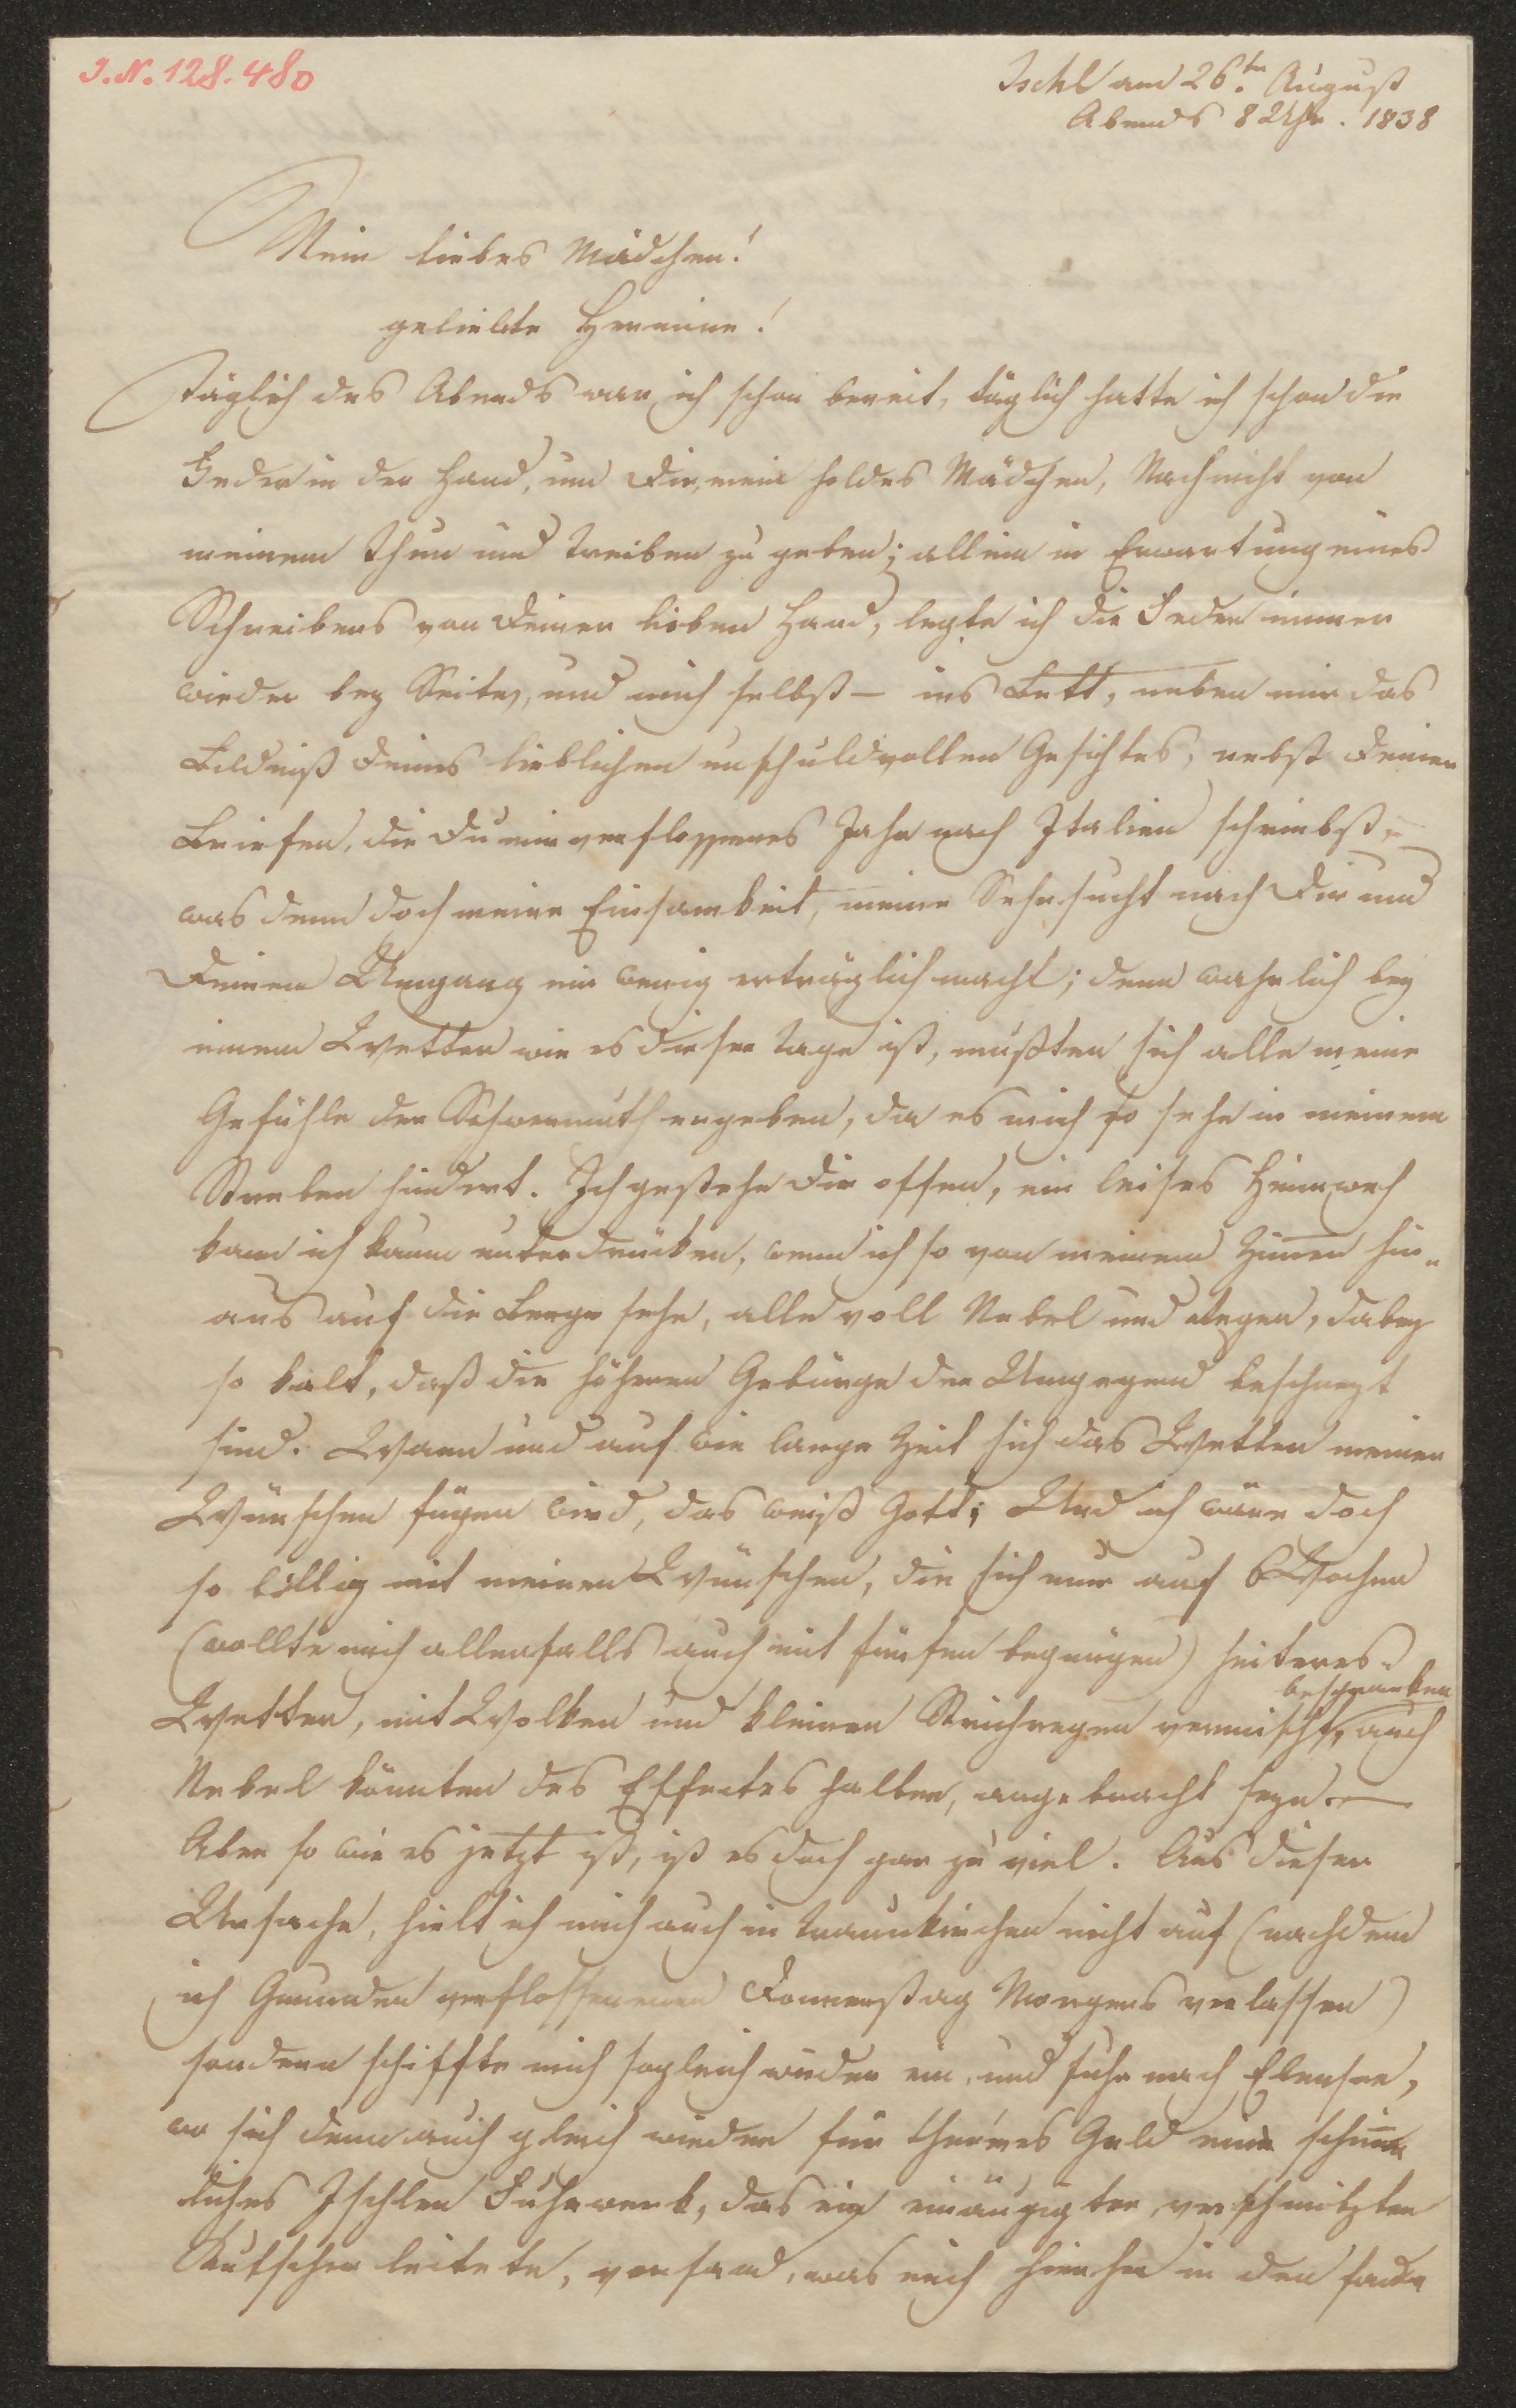 J.N. 128.480
Ischl am 26.ten August
Abends 8 Uhr. 1838
Mein liebes Mädchen!
geliebte Hermine!
Täglich des Abends war ich schon bereit, täglich hatte ich schon die
Feder in der Hand, um Dir, mein holdes Mädchen, Nachricht von
meinem Thun und Treiben zu geben; allein in Erwartung eines
Schreibens von Deiner lieben Hand, legte ich die Feder immer
wieder bey Seite, und mich selbst – ins Bett, neben mir das
Bildniß Deines lieblichen unschuldvollen Gesichtes, nebst Deinen
Briefen, die Du mir verflossenes Jahr nach Italien schriebst, –
was denn doch meine Einsamkeit, meine Sehnsucht nach Dir und
Deinem Umgang ein wenig erträglich macht; denn wahrlich bey
einem Wetter wie es dieser Tage ist, mußten sich alle meine
Gefühle der Schwermuth ergeben, da es mich so sehr in meinem
Streben hindert. Ich gestehe Dir offen, ein leises Heimweh
kann ich kaum unterdrücken, wenn ich so von meinem Zimmer hin-
aus auf die Berge sehe, alle voll Nebel und Regen, dabey
so kalt, daß die höheren Gebürge der Umgegend beschneyt
sind. Wann und auf wie lange Zeit sich das Wetter meinen
Wünschen fügen wird, das weiß Gott; Und ich wäre doch
so billig mit meinen Wünschen, die sich nur auf 6 Wochen
(wollte mich allenfalls auch mit fünfen begnügen) heiteres
Wetter, mit Wolken und kleinen Strichregen vermischt, beschränken auch
Nebel könnten des Effectes halber, angebracht seyn. –
Aber so wie es jetzt ist, ist es doch gar zu viel. Aus dieser
Ursache, hielt ich mich auch in Traunkirchen nicht auf (nachdem
ich Gmunden verflossenen Donnerstag Morgens verlassen)
sondern schiffte mich sogleich wieder ein, und fuhr nach Ebensee,
wo sich denn auch gleich wieder für theures Geld ein
Ischler Fuhrwerk, das ein einäugigter verschmitzter
Kutscher leitete, vorfand, was mich hierher in den